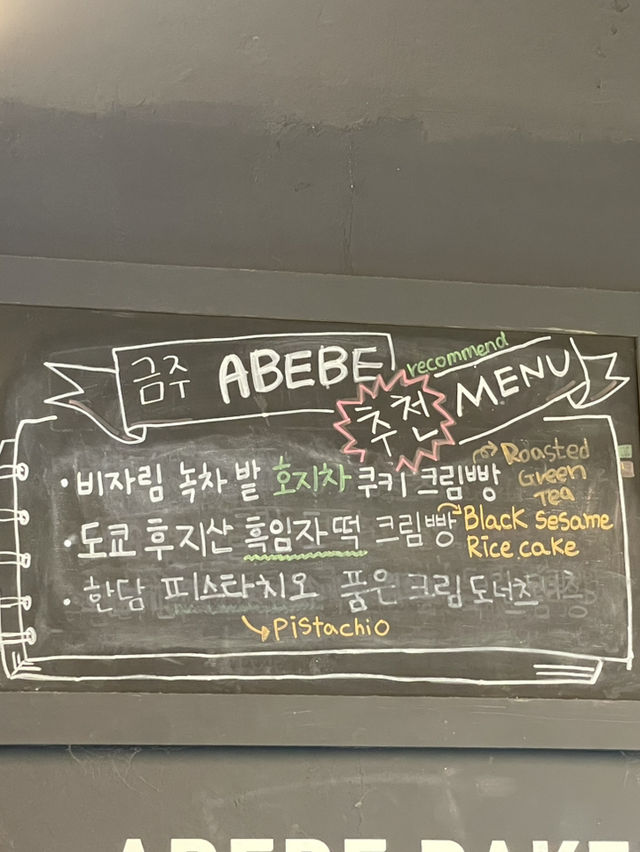 금주 ABEBE 추천 recommend MENU
· 비자림 녹차 밭 호지차 쿠키 크림빵 Roasted Green Tea
· 도쿄 후지산 흑임자 떡 크림빵 Black sesame Rice cake
· 한담 피스타치오 품은 크림 도너츠
Pistachio
ABEBE BAKE